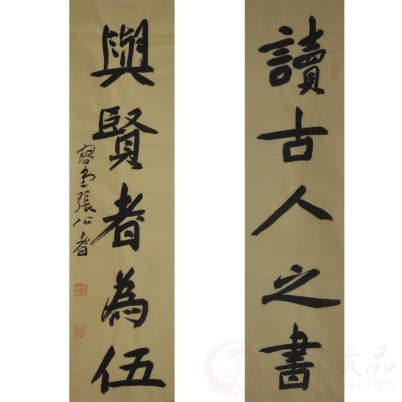 讀古人之書
與賢者為伍
張公者